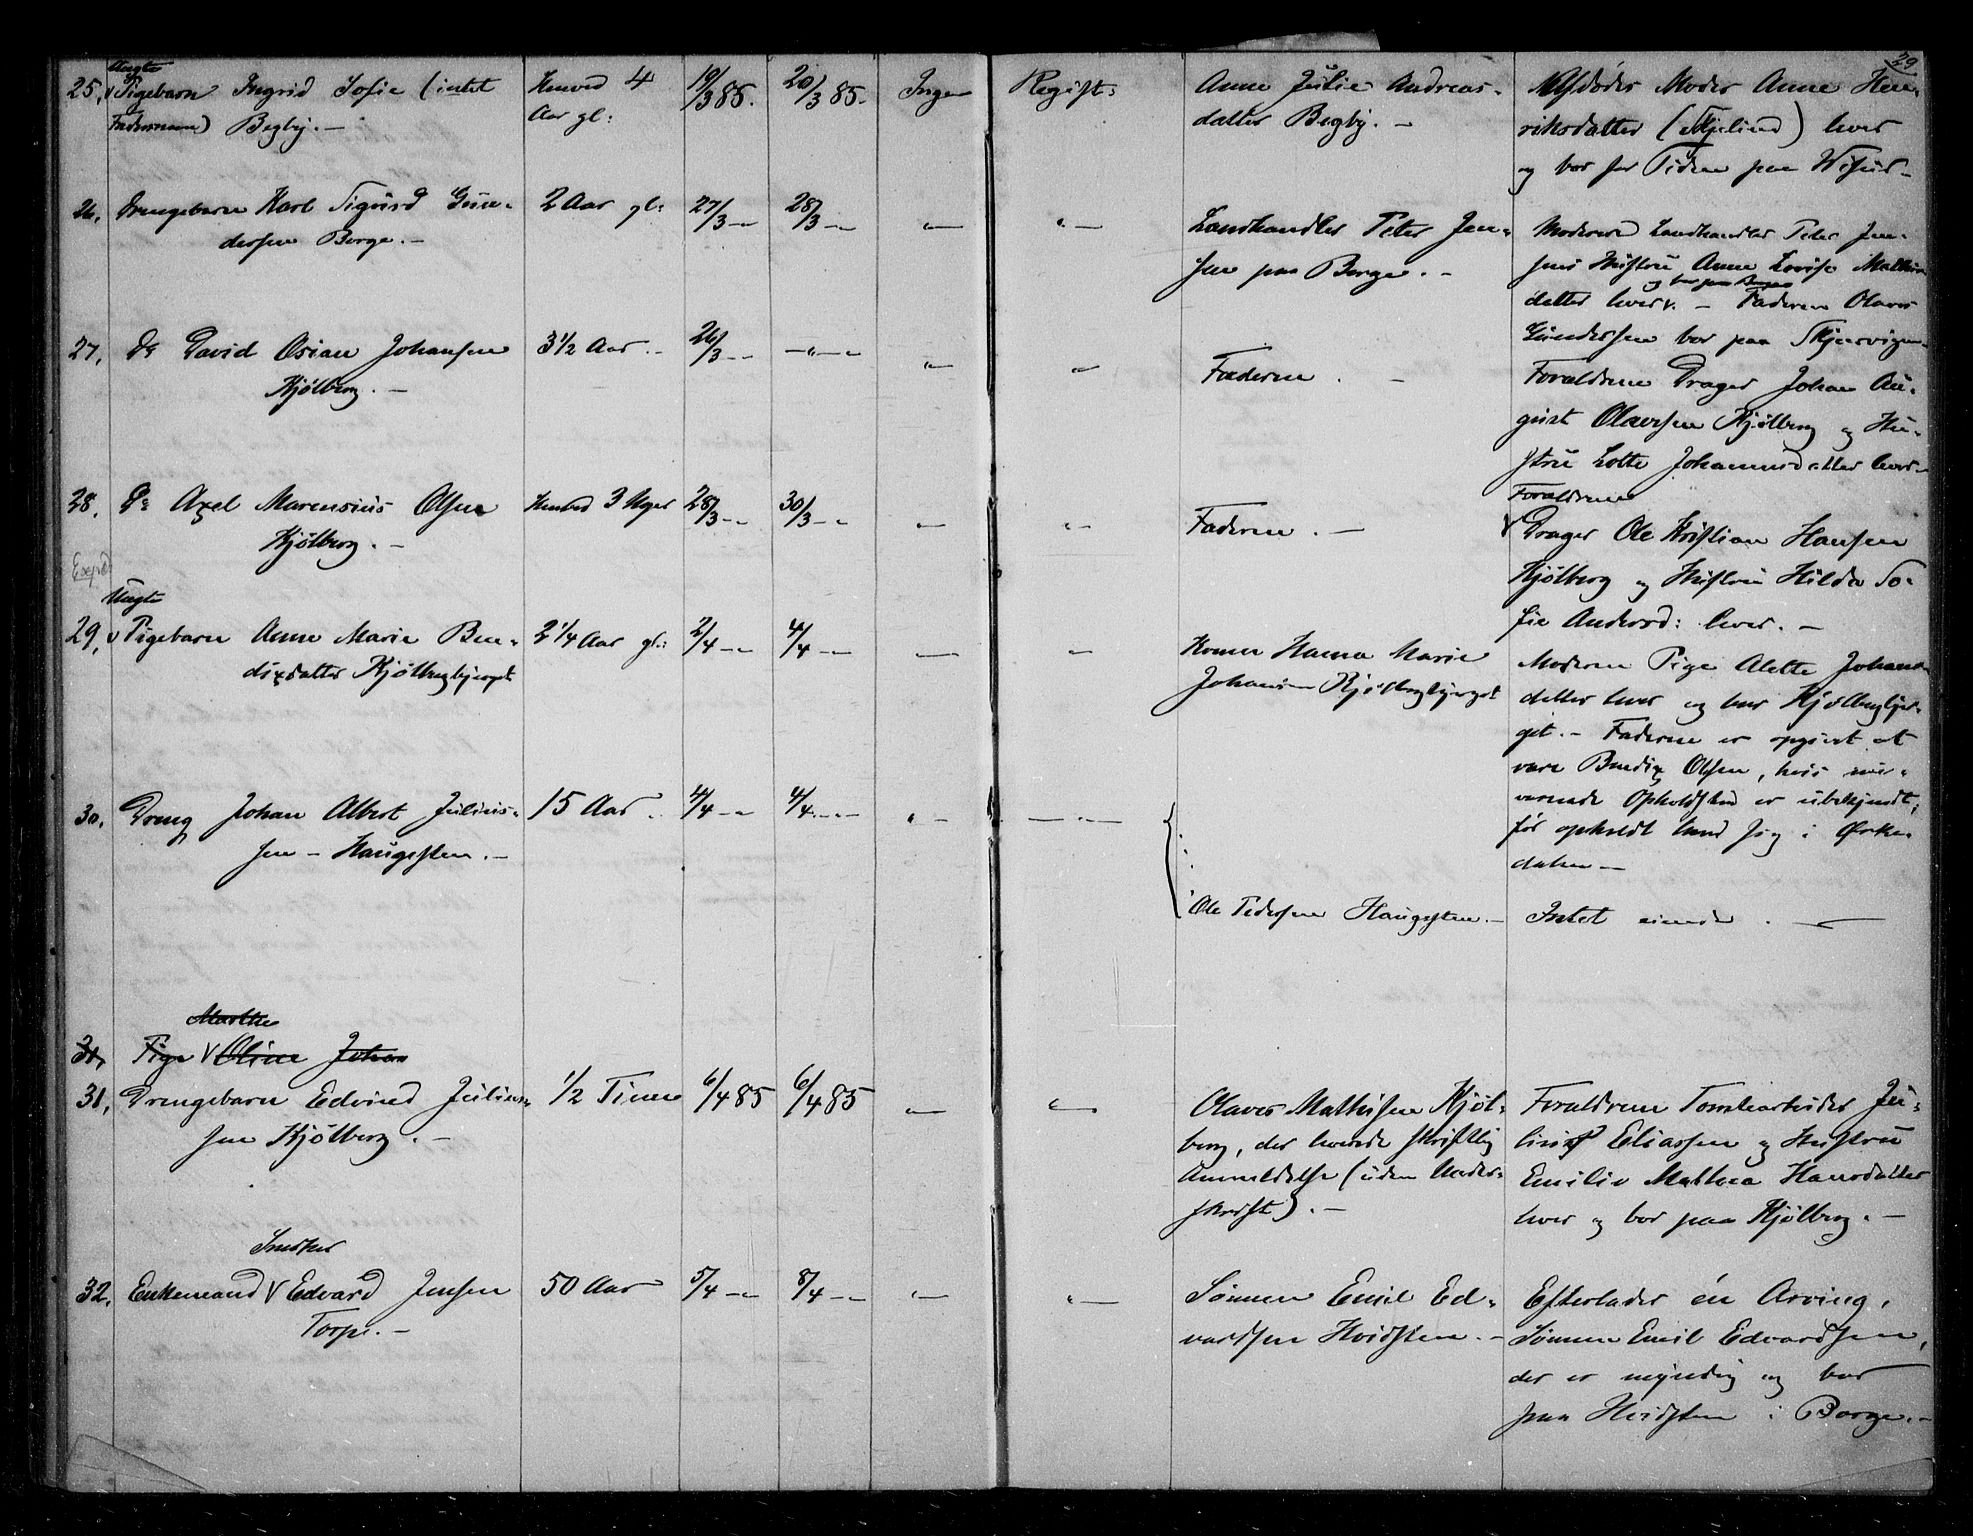 29
Uægte
25. Pigebarn Ingrid Sofie (intet
Fadernavn) Begby. —
Henved 4
Aar gl:
19/3 85.
20/3 85.
Ingen
Regist:
Anne Julie Andreas-
datter Begby. —
Afdødes Moder Anne Hen-
riksdatter (Skjelin) lever
og bor for Tiden paa
26. Drengebarn Karl Sigurd Gun-
dersen Borge. —
2 Aar gl:
27/3 —"—
28/3 —"—
—"—
"—
Landhandler Peter Jen-
sen paa Borge. —
Moderen Landhandler Peter Jen-
sens Hustru Anne Lovise Mathis-
og bor paa Borge
datter lever. — Faderen Olaves
Gundersen bor paa Skjærvigen.
27. Do David Osian Johansen
Kjølberg. —
3 1/2 Aar. —
26/3 —"—
—"—
"—
"—
Faderen. —
Forældrene Drager Johan Au-
gust Olavesen Kjølberg og Hu-
stru Lotte Johannesdatter lever
28. Do Axel Marensius Olsen
Kjølberg. —
Henved 3 Uger
28/3 —"—
30/3 —"—
"—
"—
Faderen. —
Forældrene
Drager Ole Kristian Hansen
Kjølberg og Hustru Hilda So-
fie Andersd: lever. —
Exped
Uægte
29. Pigebarn Anne Marie Ben-
dixdatter Kjølbergbjerget
2 1/4 Aar gl:
2/4 —"—
4/4 —"—
"—
"—
Konen Hanna Marie
Johansen Kjølbergbjerget
Moderen Pige Alette Johans-
datter lever og bor Kjølbergbjer-
get. — Faderen er opgivet at
være Bendix Olsen, hvis nu-
værende Opholdsted er ubekjendt,
før opholdt han sig i Ørke-
dalen —
30. Dreng Johan Albert Julius-
sen — Haugesten. —
15 Aar.
4/4 —"—
4/4 —"—
"—
—"—
Ole Pedersen Haugesten. —
Intet eiende. —
Marthe
31, Pige Oline Johan
31, Drengebarn Edvind Julius-
sen Kjølberg. —
1/2 Time
6/4 85
6/4 85
"—
"—
Olaves Mathisen Kjøl-
berg, der leverede skriftlig
Anmeldelse (uden Under-
skrift). —
Forældrene Tomtearbeider Ju-
lius Eliassen og Hustru
Emilie Mathea Hansdatter
lever og bor paa Kjølberg. —
Snedker
32. Enkemand Edvard Jensen
Torp. —
50 Aar
5/4 —"—
8/4 —"—
"—
"—
Sønnen Emil Ed-
vardsen Hvidsten. —
Efterlader én Arving,
Sønnen Emil Edvardsen,
der er myndig og bor
paa Hvidsten i Borge. —